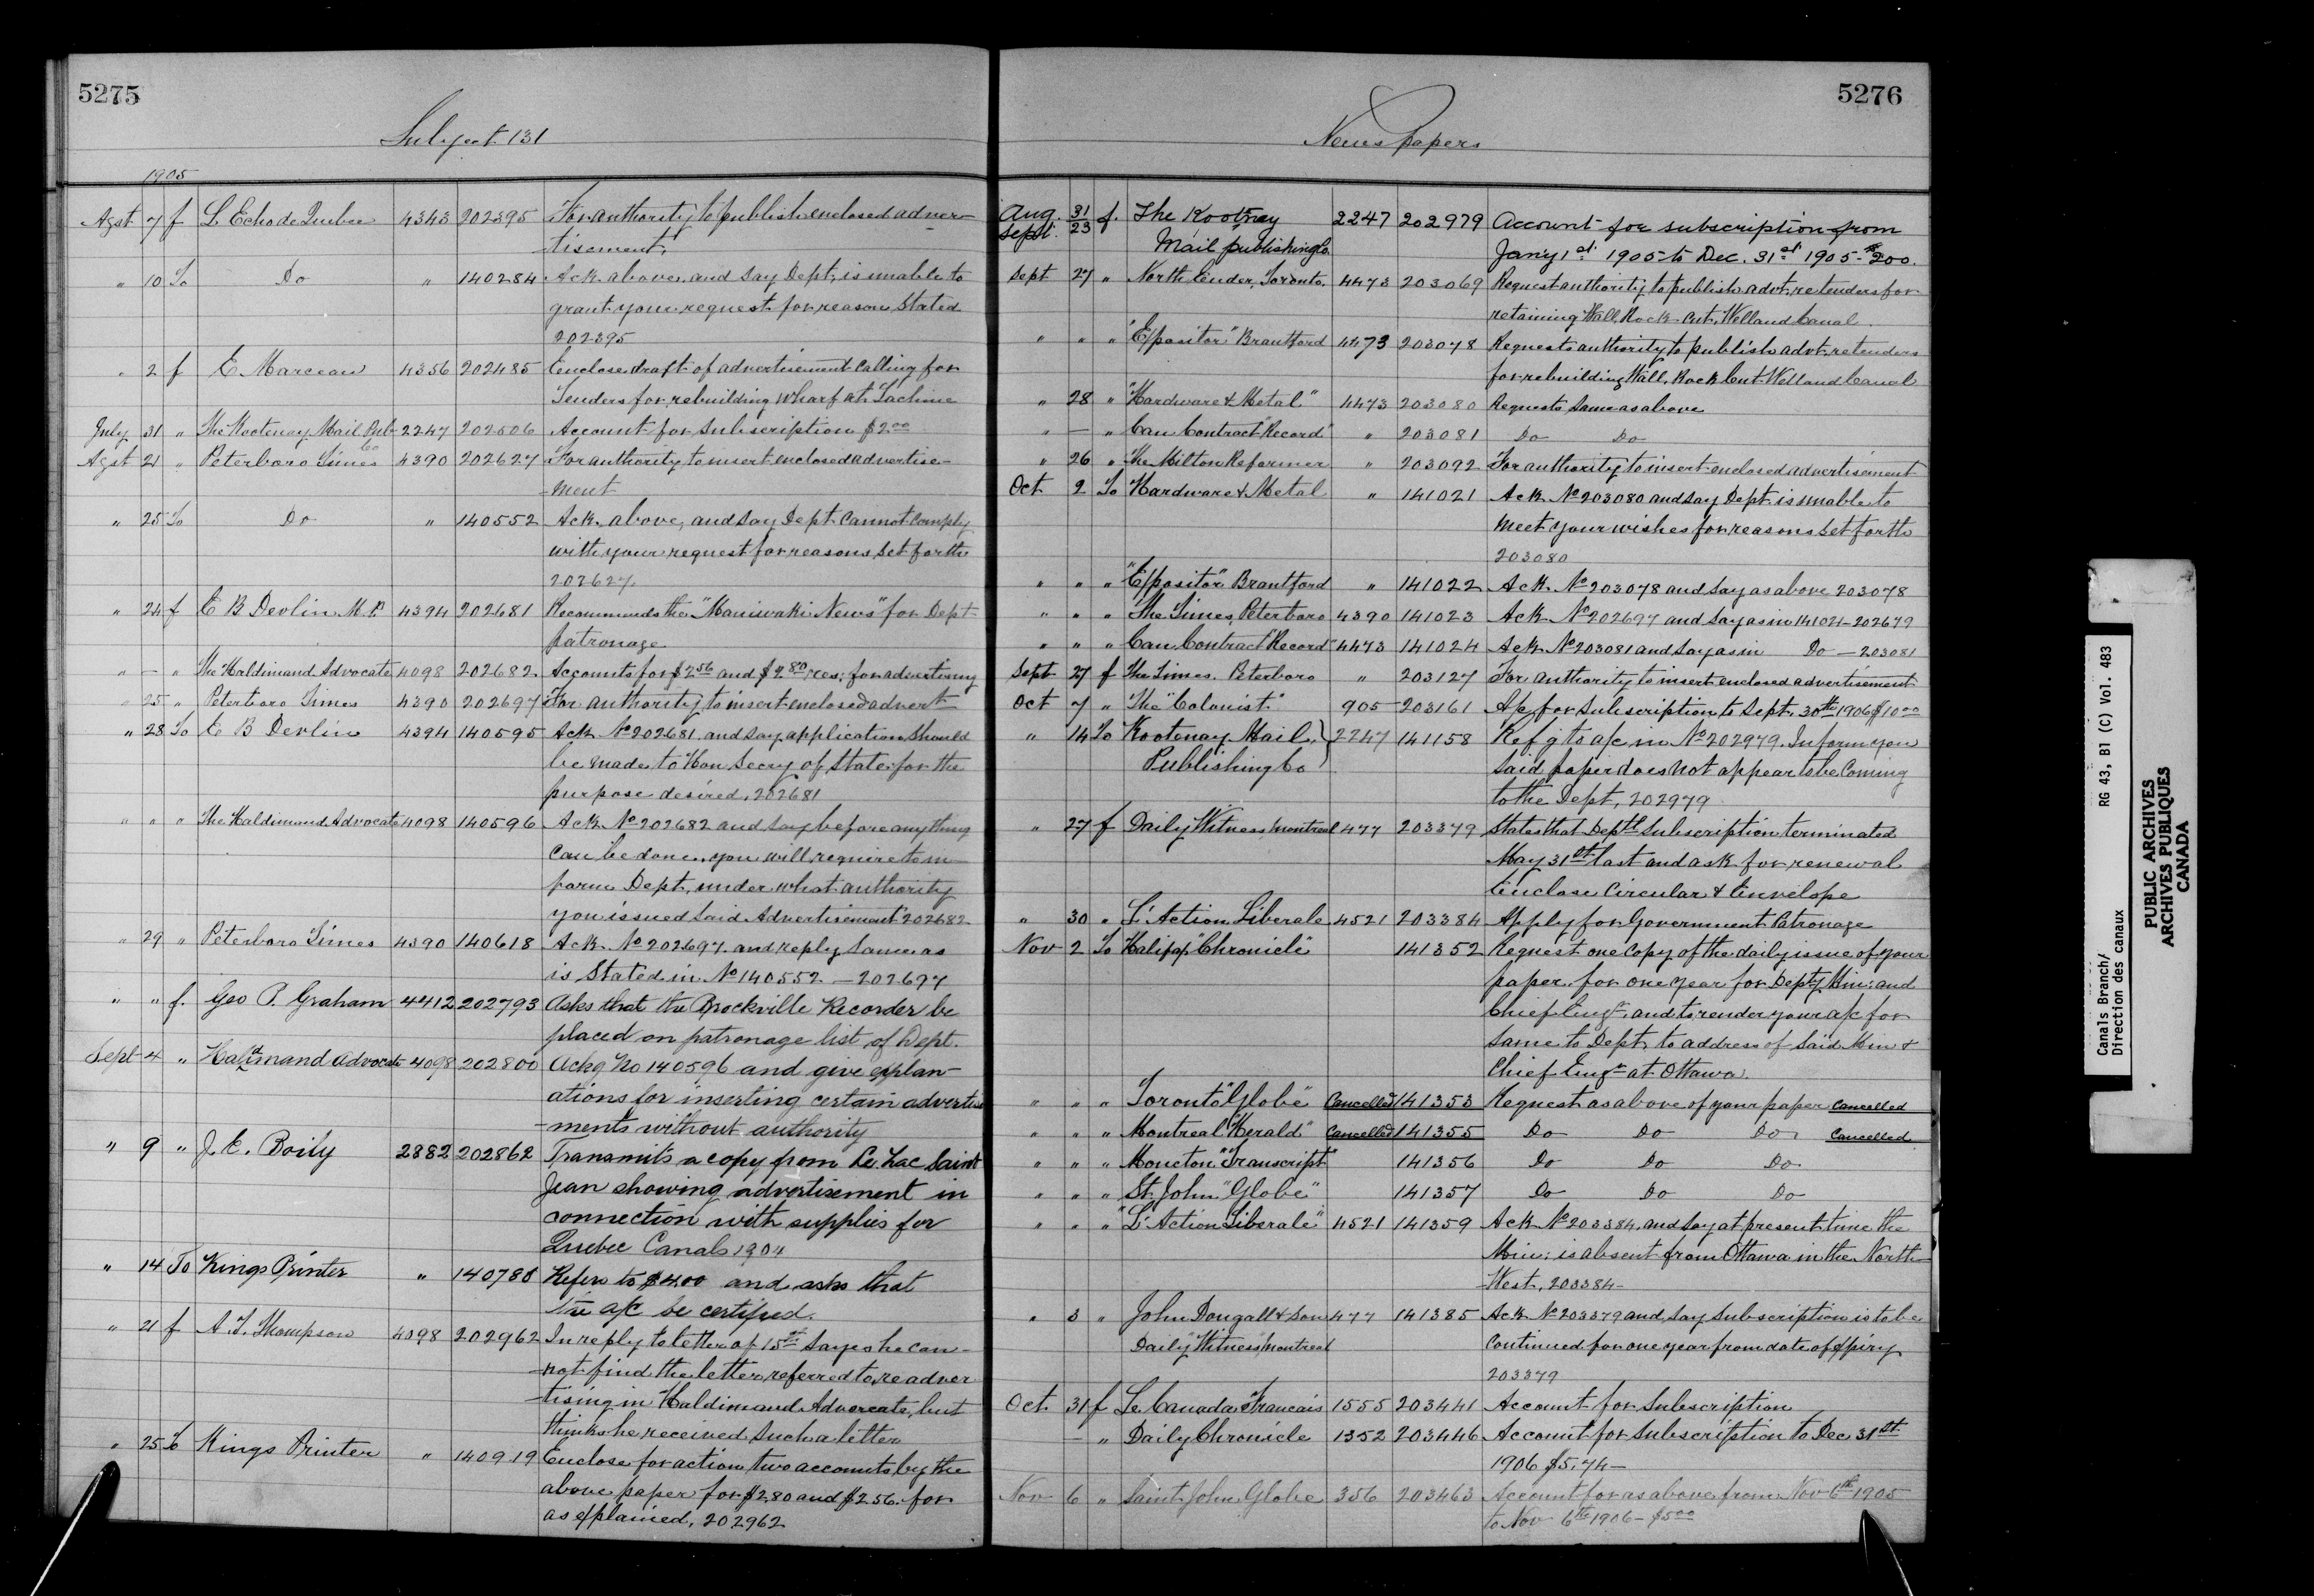 5275
Subject 131
1905
Agst 7 f L Echo de Quebec 4343 202395 For authority to publish enclosed adver-
tisement,
" 10 To Do " 140284 Ack. above, and say Dept. is unable to
grant your request for reason stated
202395
" 2 f E Marceau 4356 202485 Enclose draft of advertisement calling for
Tenders for rebuilding wharf at Lachine
July 31 " The Kootenay Mail Pub Co 2247 202506 Account for subscription $2.00
Agst 21 " Peterboro Times 4390 202627 For authority to insert enclosed advertise-
ment
" 25 To Do " 140552 Ack. above, and say Dept cannot comply
with your request for reasons set forth
202627
" 24 f E B Devlin M.P. 4394 202681 Recommends the "Maniwaki News" for Dept
patronage
" — " The Haldimand Advocate 4098 202682 Accounts for $2.56 and $2.80 res; for advertising
" 25 " Peterboro Times 4390 202697 For authority to insert enclosed advert
" 28 To E B Devlin 4394 140595 Ack No 202681 and say application should
be made to Hon Secry of State for the
purpose desired, 202681
" " " The Haldimand Advocate 4098 140596 Ack No 202682 and say before anything
can be done, you will require to in
form Dept, under what authority
you issued said Advertisement 202682
" 29 " Peterboro Times 4390 140618 Ack. No 202697 and reply same as
is stated in No 140552 — 202697
" " f. Geo P. Graham 4412 202793 Asks that the Brockville Recorder be
placed on patronage list of Dept.
Sept 4 " Haldimand Advocate 4098 202800 Ackg No 140596 and give explan-
ations for inserting certain advertise
-ments without authority
" 9 " J. E. Boily 2882 202862 Transmits a copy from Le Lac Saint
Jean showing advertisement in
connection with supplies for
Quebec Canals 1904
" 14 To Kings Printer " 140781 Refers to $4.00 and asks that
the a/c be certified.
" 21 f A. T. Thompson 4098 202962 In reply to letter of 15th says he can-
-not find the letter referred to, re adver
-tising in Haldimand Advocate, but
thinks he received such a letter
" 25 To Kings Printer " 140919 Enclose for action two accounts by the
above paper for $2.80 and $2.56. for
as explained, 202962
5276
Newspapers
Aug. 31 Sept. 23 f. The Kootney 2247 202979 Account for subscription from
Mail publishing Co. Jany 1st 1905 to Dec. 31st 1905 - $2.00.
Sept 27 " North Ender, Toronto. 4473 203069 Request authority to publish advt. re tenders for
retaining Wall, Rock Cut, Welland Canal.
" " " "Expositor" Brantford 4473 203078 Requests authority to publish advt. re tenders
for rebuilding Wall, Rock Cut Welland Canal
" 28 " "Hardware & Metal" 4473 203080 Requests same as above
" — " Can Contract "Record" " 203081 Do Do
" 26 " The Milton Reformer " 203092 For authority to insert enclosed advertisement
Oct 2 To Hardware & Metal " 141021 Ack. No 203080 and say Dept is unable to
meet your wishes for reasons set forth
203080
" " " "Expositor" Brantford " 141022 Ack. No 203078 and say as above 203078
" " " "The Times, Peterboro 4390 141023 Ack No 202697 and say as in 141021 - 202679
" " " Can Contract "Record" 4473 141024 Ack No 203081 and say as in Do — 203081
Sept 27 f The Times. Peterboro " 203127 For authority to insert enclosed advertisement
Oct 7 " The "Colonist" 905 203161 A/c for subscription to Sept. 30th 1906 $10.00
" 14 To Kootenay Mail, 2247 141158 Ref g to a/c in No 202979. Inform you
Publishing Co said paper does not appear to be coming
to the Dept, 202979
" 27 f Daily Witness Montreal 477 203379 States that Depts subscription terminated
May 31st last and ask for renewal
Enclose Circular & Envelope
" 30 " L'Action Liberale 4521 203384 Apply for Government Patronage
Nov 2 To Halifax "Chronicle" 141352 Request one copy of the daily issue of your
paper for one year for Depty Min: and
Chief Engr, and to render your a/c for
same to Dept, to address of said Min &
Chief Engr at Ottawa.
" " " Toronto "Globe" Cancelled 141353 Request as above of your paper Cancelled
" " " Montreal "Herald" Cancelled 141355 Do Do Do Cancelled
" " " Moncton "Transcript" 141356 Do Do Do
" " " St. John "Globe" 141357 Do Do Do
" " " "L'Action Liberale" 4521 141359 Ack No 203384, and say at present time the
Min: is absent from Ottawa in the North-
West, 203384—
" 3 " John Dougall & Son 477 141385 Ack No 203379 and say subscription is to be
Daily "Witness" Montreal continued for one year from date of expiry
203379
Oct. 31 f Le Canada Francais 1555 203441 Account for Subscription
— " Daily Chronicle 1352 203446 Account for Subscription to Dec 31st
1906 $5.74—
Nov 6 " Saint John Globe 356 203463 Account for as above from Nov 6th 1905
to Nov 6th 1906 - $5.00
Canals Branch/
Direction des canaux
RG 43, B1 (C) Vol. 483
PUBLIC ARCHIVES
ARCHIVES PUBLIQUES
CANADA